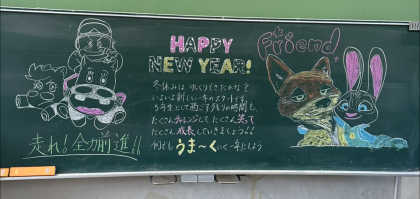 HAPPY
NEW YEAR!
Friend
冬休みは、ゆっくりできたかな？
いよいよ新しい年のスタートです
5年生として過ごす残りの時間も、
たくさんチャレンジして たくさん笑って
たくさん成長していきましょう!!
うま〜く いく一年にしよう
走れ! 全力前進!!